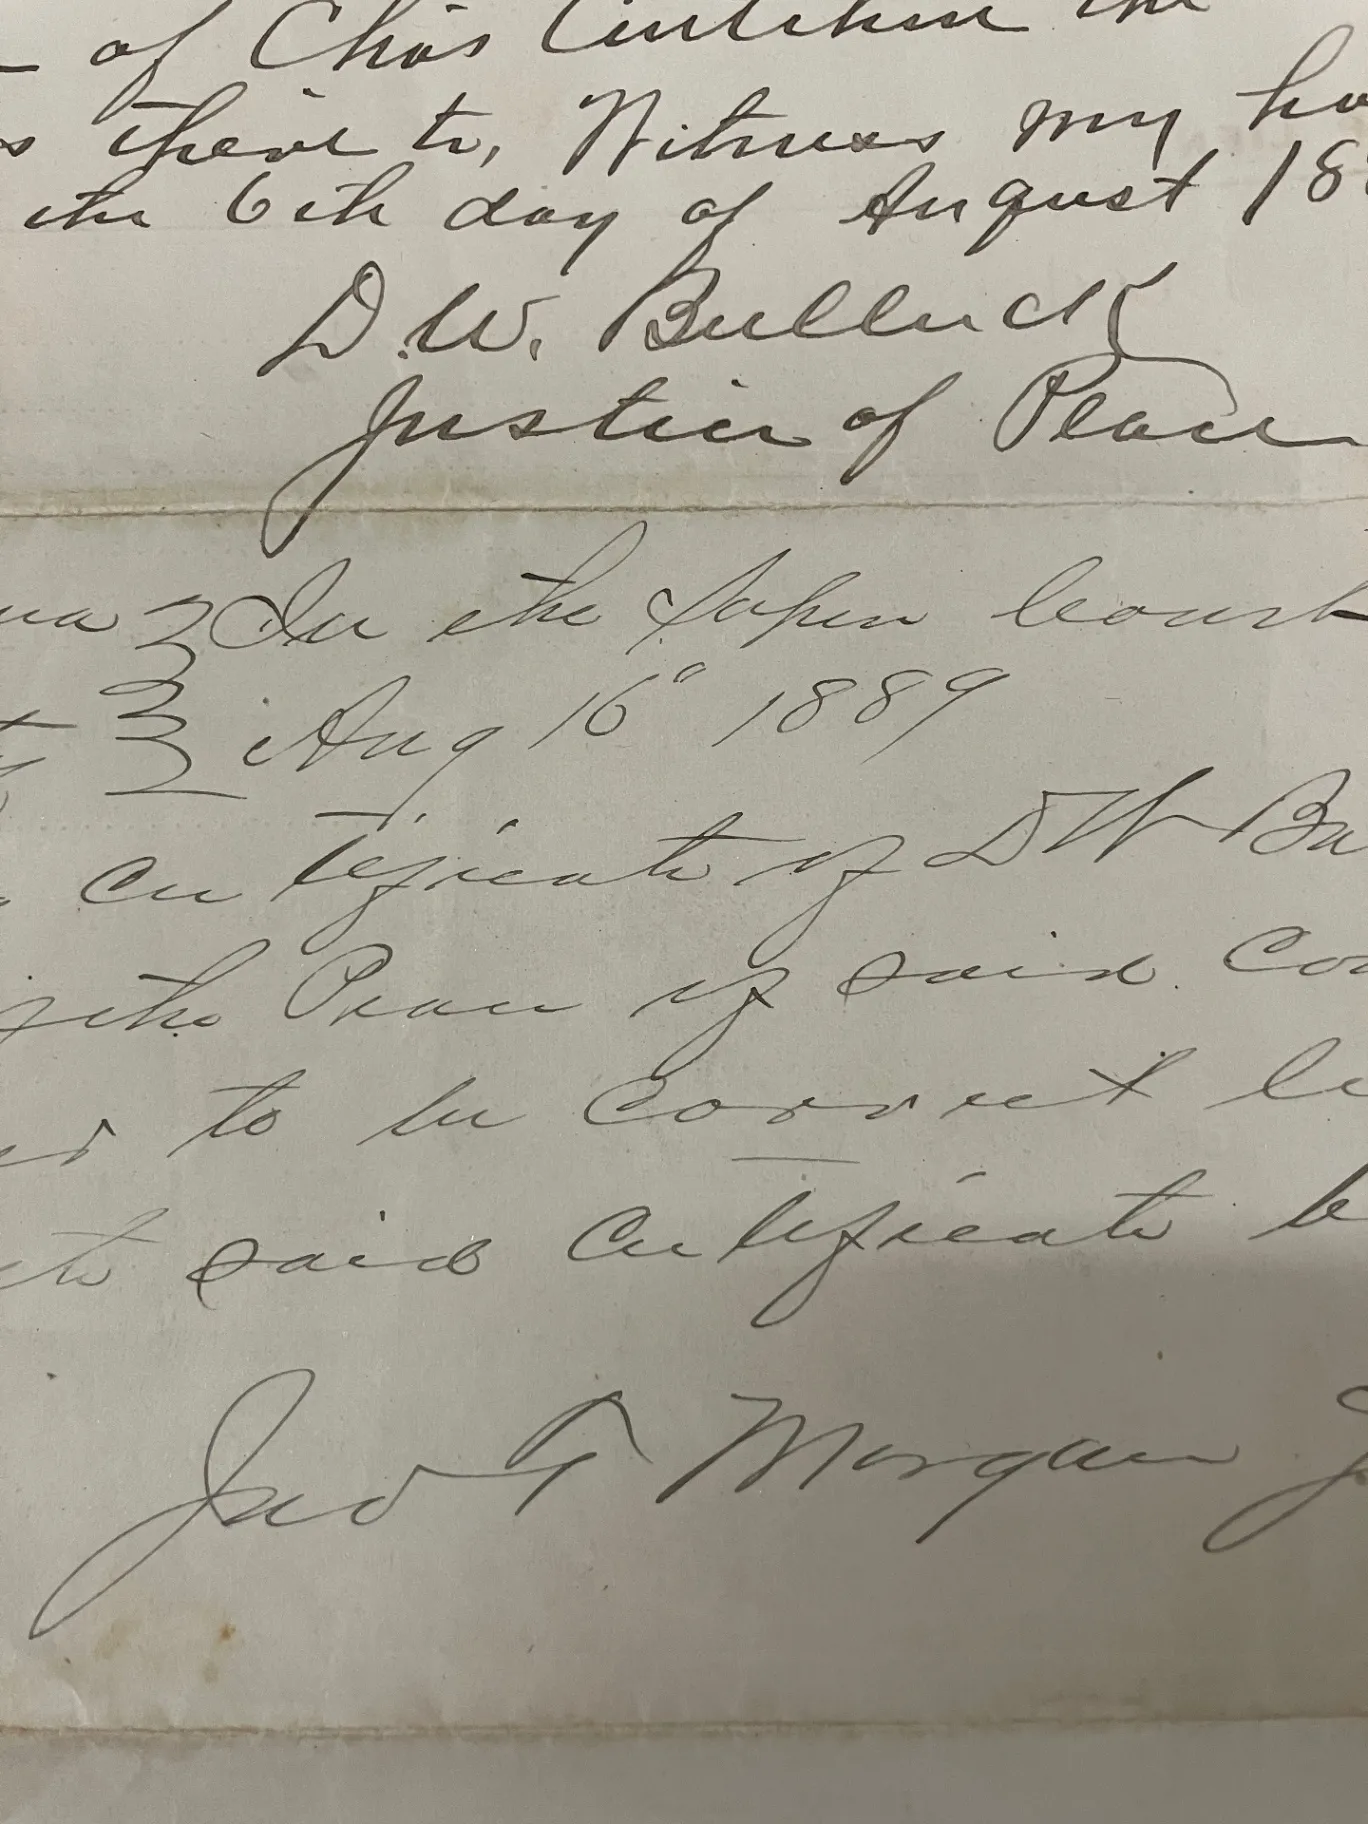 of Chas Cutchin the
s there to, Witness my ha
the 6th day of August 18
D. W. Bulluck
Justice of Peace
na In the Super Court
Aug 16" 1889
certificate of D W Bu
the Peace of said Cou
to be correct
said certificate b
Jno T Morgan J